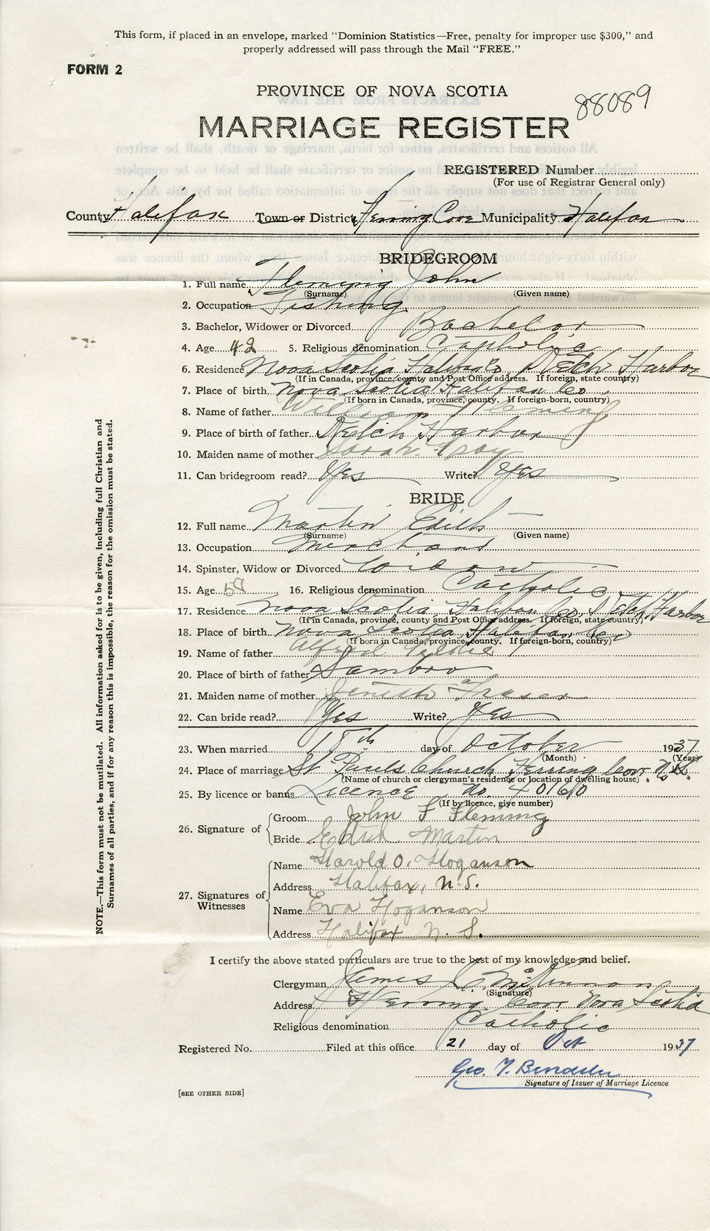 This form, if placed in an envelope, marked "Dominion Statistics—Free, penalty for improper use $300," and
properly addressed will pass through the Mail "FREE."
FORM 2
PROVINCE OF NOVA SCOTIA
88089
MARRIAGE REGISTER
REGISTERED Number
(For use of Registrar General only)
County Halifax Town or District Herring Cove Municipality Halifax
BRIDEGROOM
1. Full name Fleming John
(Surname) (Given name)
2. Occupation Fishing
3. Bachelor, Widower or Divorced Bachelor
4. Age 42 5. Religious denomination Catholic
6. Residence Nova Scotia Halifax Co Ketch Harbor
(If in Canada, province, county and Post Office address. If foreign, state country)
7. Place of birth Nova Scotia Halifax Co.
(If born in Canada, province, county. If foreign-born, country)
8. Name of father William Fleming
9. Place of birth of father Ketch Harbor
10. Maiden name of mother Sarah Gray
11. Can bridegroom read? Yes Write? Yes
BRIDE
12. Full name Martin Edith
(Surname) (Given name)
13. Occupation Merchant
14. Spinster, Widow or Divorced Widow
15. Age 50 16. Religious denomination Catholic
17. Residence Nova Scotia Halifax Co. Ketch Harbor
(If in Canada, province, county and Post Office address. If foreign, state country)
18. Place of birth Nova Scotia Halifax Co
(If born in Canada, province, county. If foreign-born, country)
19. Name of father Alfred
20. Place of birth of father Sambro
21. Maiden name of mother Fraser
22. Can bride read? Yes Write? Yes
23. When married day of October 1937
(Month) (Year)
24. Place of marriage St Pauls Church Herring Cove N.S.
(Name of church or clergyman's residence or location of dwelling house)
25. By licence or banns Licence No. 40160
(If by licence, give number)
26. Signature of
Groom John F Fleming
Bride Edith Martin
27. Signatures of Witnesses
Name Harold O. Hoganson
Address Halifax, N.S.
Name Eva Hoganson
Address Halifax N. S.
I certify the above stated particulars are true to the best of my knowledge and belief.
Clergyman James C McKinnon
(Signature)
Address Herring Cove Nova Scotia
Religious denomination Catholic
Registered No. Filed at this office 21 day of Oct 1937
Geo. T.
Signature of Issuer of Marriage Licence
[SEE OTHER SIDE]
NOTE.—This form must not be mutilated. All information asked for is to be given, including full Christian and
Surnames of all parties, and if for any reason this is impossible, the reason for the omission must be stated.